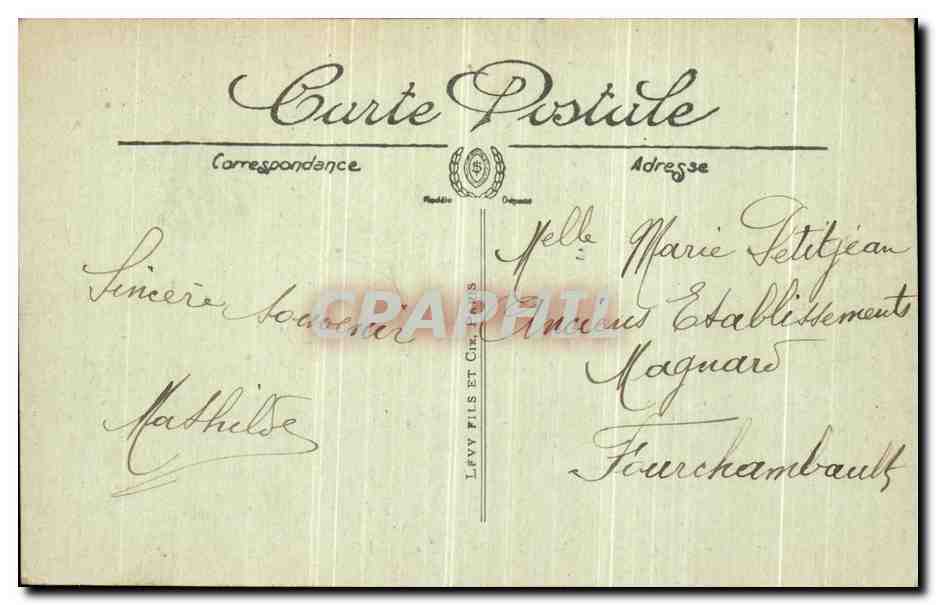 Carte Postale
Correspondance
Adresse
Modèle Déposé
Sincère souvenir
Mathilde
LEVY FILS ET CIE, PARIS
Melle Marie Petitjean
Anciens Etablissements
Magnard
Fourchambault
CPAPHIL